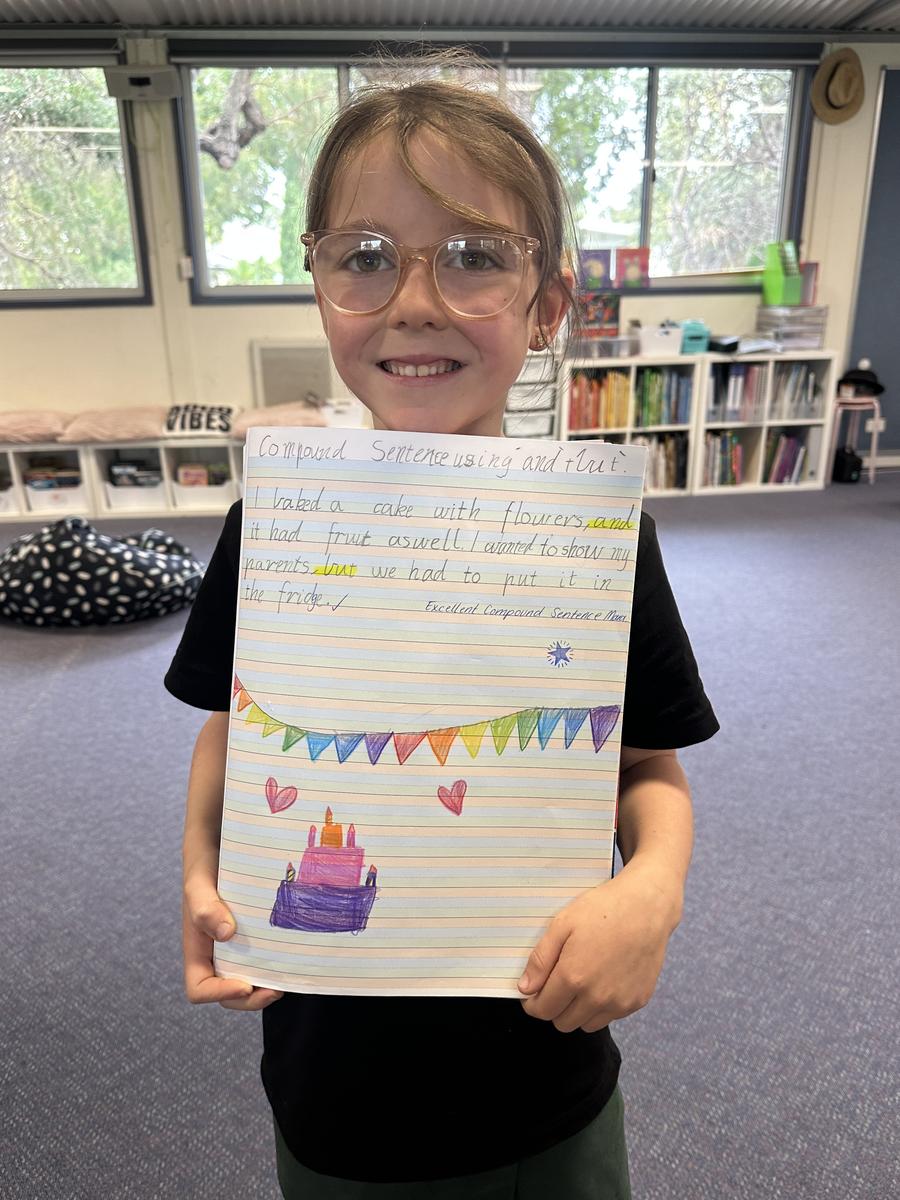 VIBES
Compound Sentence using "and + but".
I baked a cake with flowers, and
it had fruit aswell. I wanted to show my
parents, but we had to put it in
the fridge. ✓
Excellent Compound Sentence